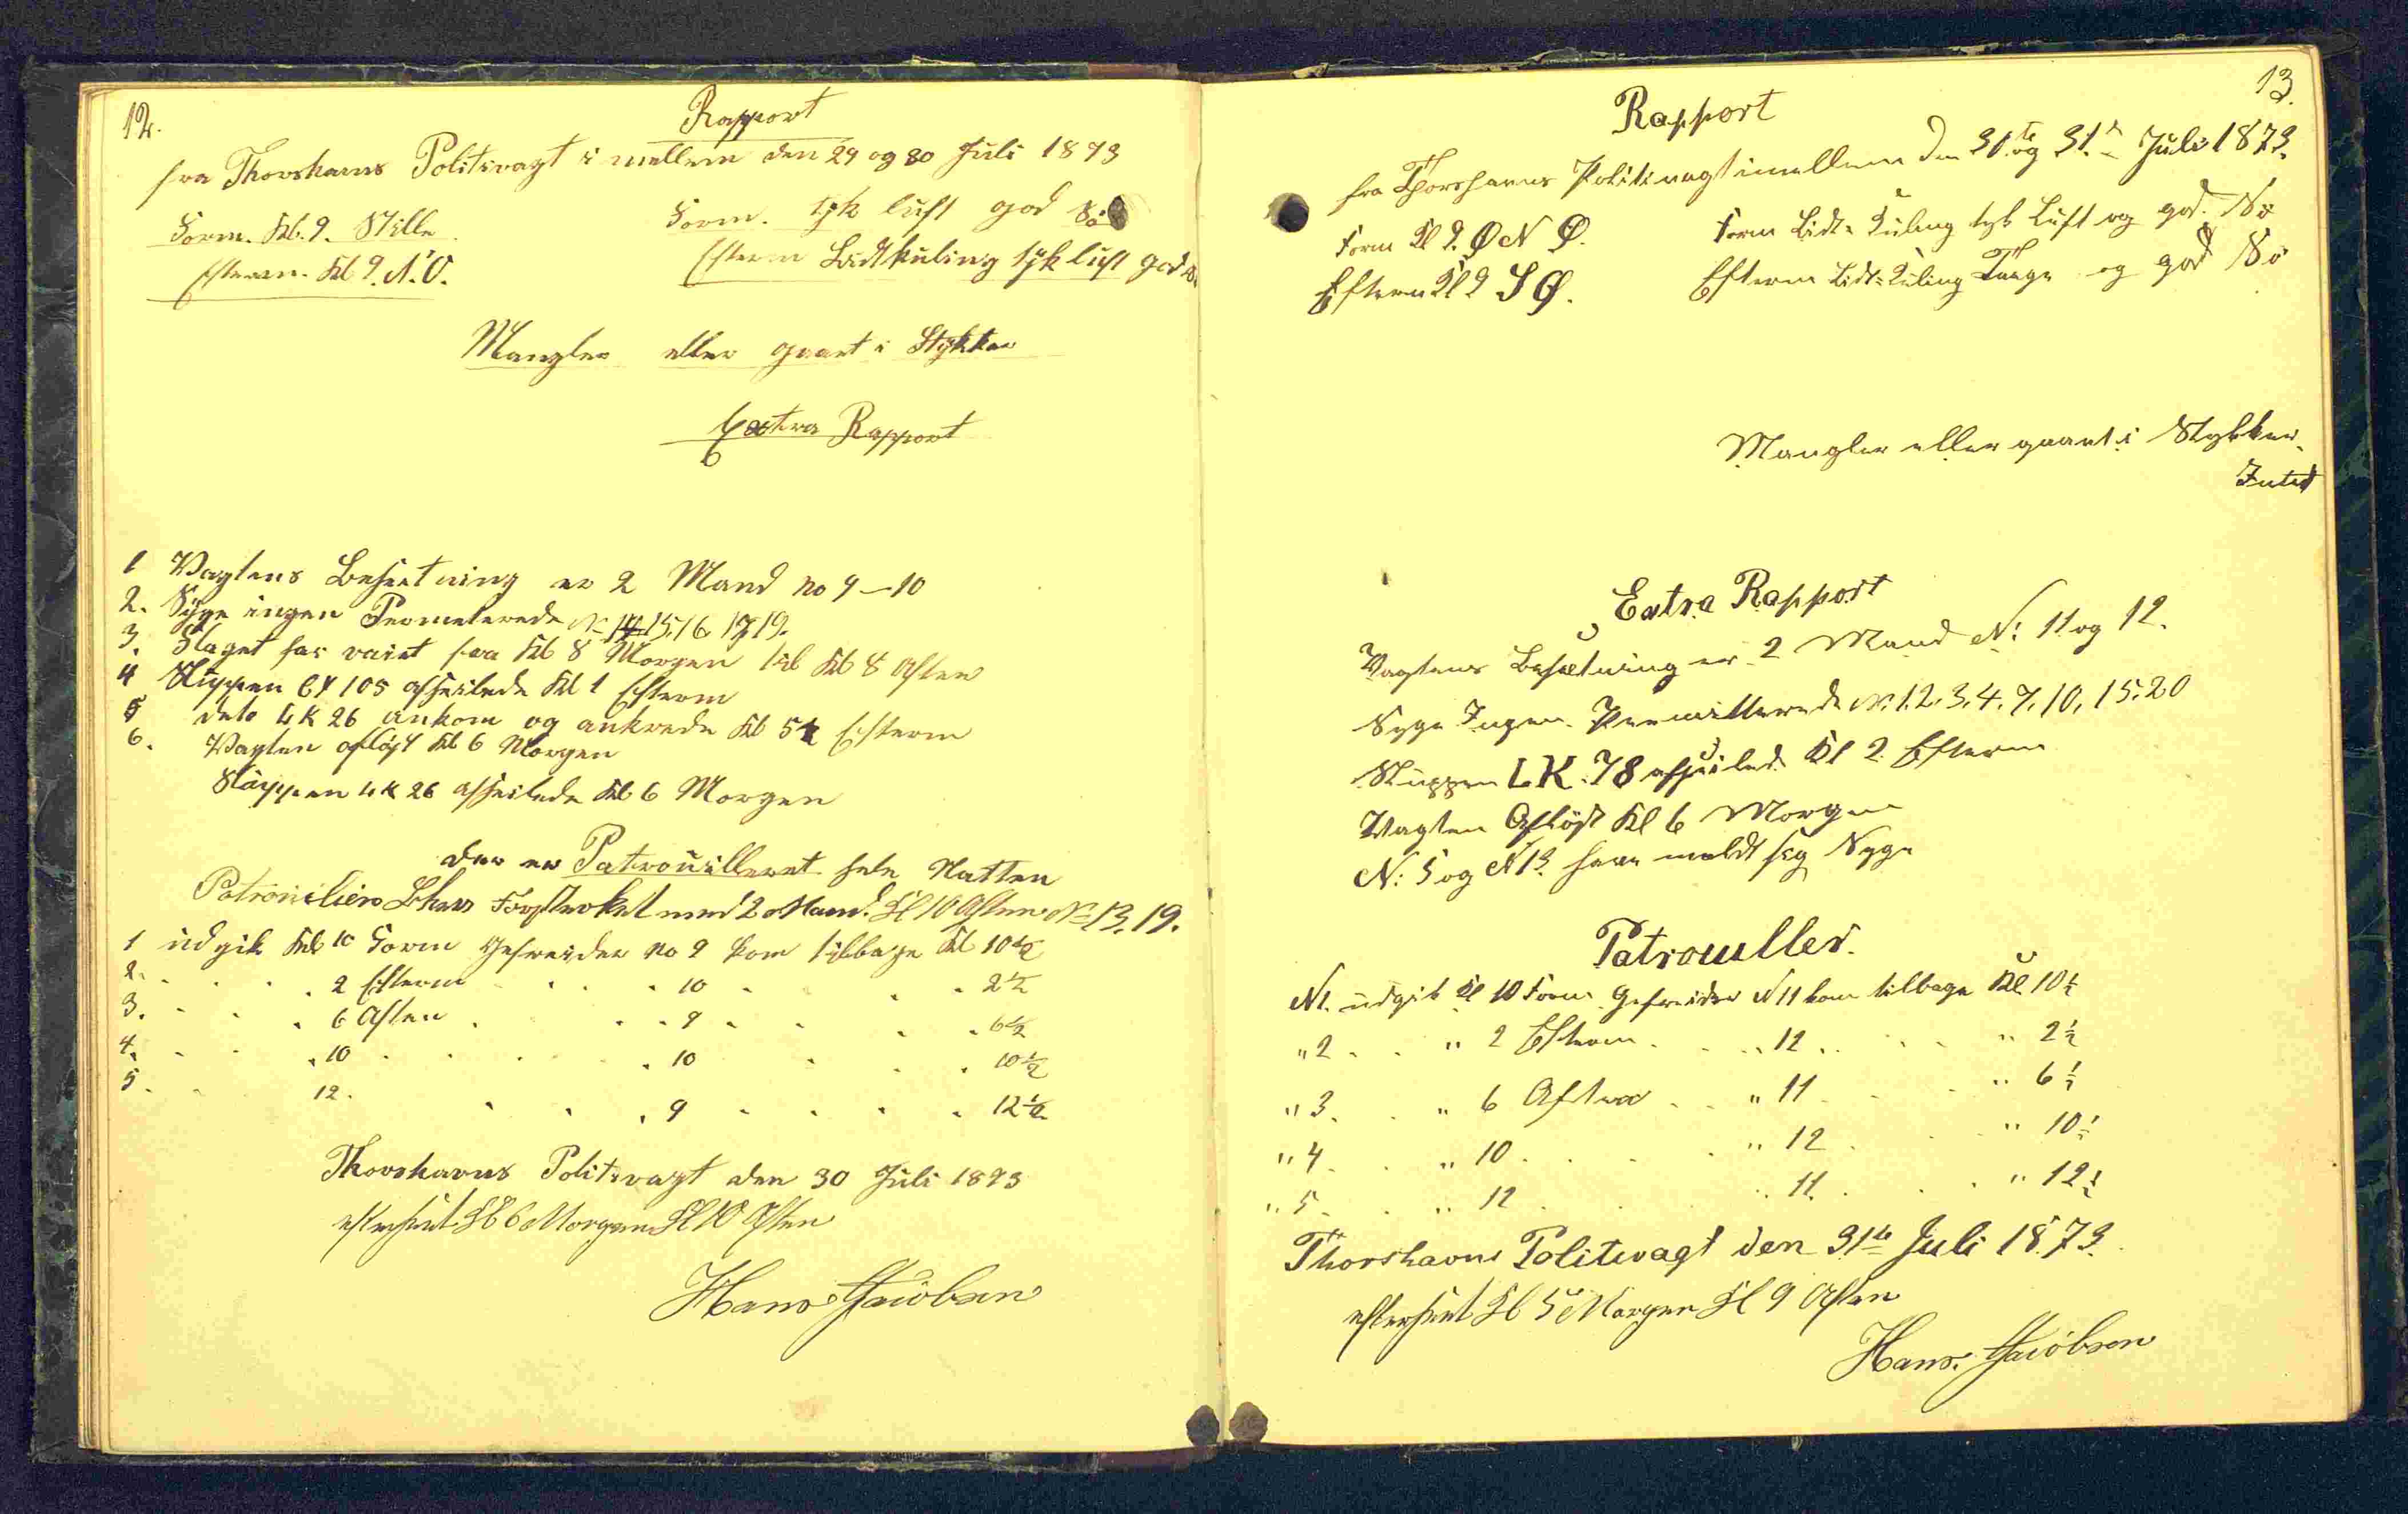 12.
Rapport
fra Thorshavns Politivagt i mellem den 29 og 30 Juli 1873
Form. Kl. 9. Stille
Form. tyk luft god Sö
Efterm. Kl 9. N.O.
Efterm Lidt kuling tyk luft god
Mangler eller gaaet i Stykker
Extra Rapport
1 Vagtens Besætning er 2 Mand no 9-10
2. Syge ingen Permeterede N 15.16 17 19.
3. Flaget har vaiet fra Kl 8 Morgen til Kl 8 Aften
4 Sluppen 105 afseilede Kl 1 Efterm
5 dito LK 26 ankom og ankrede Kl 5 Efterm
6. Vagten aflöst Kl 6 Morgen
Sluppen LK 26 afseilede Kl 6 Morgen
der er Patrouilleret hele Natten
forsterket med 2 Mand. Kl 10 Aften N 13. 19.
1 udgik Kl 10 Form Gefreider no 9 kom tilbage Kl 10½
2. . . . 2 Efterm . . . 10 . . . 2½
3. . . . 6 Aften . . . 9 . . . 6½
4. . . . 10 . . . 10 . . . 10½
5. . . 12. . . . 9 . . . . 12½
Thorshavns Politivagt den 30 Juli 1873
efterseet Kl 6 Morgen Kl 10 Aften
Hans Jacobsen
13.
Rapport
fra Thorshavns Politivagt imellem den 30te og 31te Juli 1873.
Form Kl 9. Ø N Ø.
Form Lidt Kuling tyk Luft og god Sö
Efterm Kl 9 S Ø.
Efterm Lidt Kuling Taage og god Sö
Mangler eller gaaet i Stykker.
Intet
Extra Rapport
Vagtens Besætning er 2 Mand N: 11 og 12.
Syge Ingen. Permitterede N. 1. 2. 3. 4. 7. 10. 15. 20
Sluppen LK. 78 afseilede Kl 2 Efterm
Vagten Aflöst Kl 6 Morgen
N: 5 og N 13 have meldt sig Syge
Patrouller.
N1. udgik Kl 10 Form Gefreider N 11 kom tilbage Kl 10½
"2 . . " 2 Efterm . . " 12 . . . " 2½
"3. . " 6 Aften . . " 11 . . " 6½
"4. . " 10 . . . " 12 . . " 10½
"5. . " 12 . . " 11. . . " 12½
Thorshavns Politivagt den 31te Juli 1873.
efterseet Kl 5 Morgen Kl 9 Aften
Hans Jacobsen